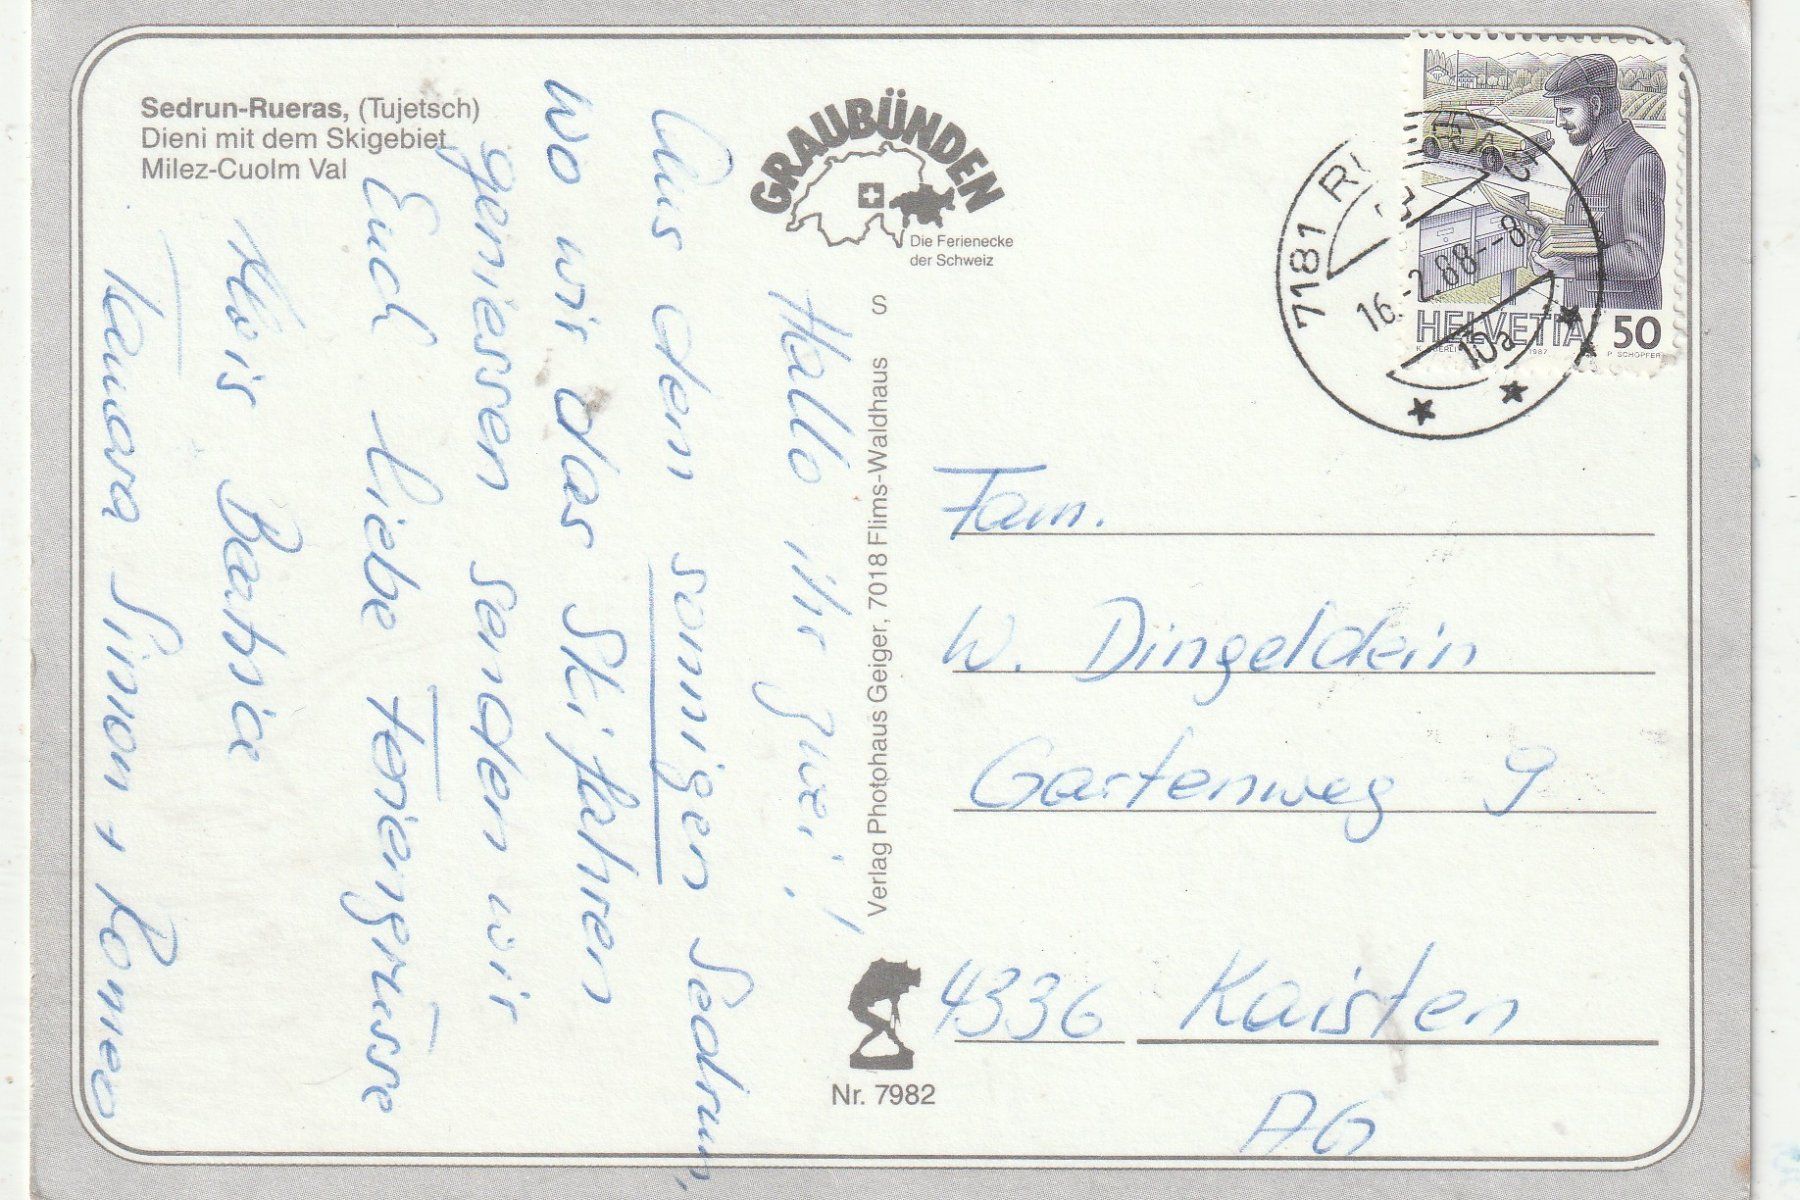 Sedrun-Rueras, (Tujetsch)
Dieni mit dem Skigebiet
Milez-Cuolm Val
GRAUBÜNDEN
Die Ferienecke
der Schweiz
HELVETIA 50
1987
P. SCHOPFER
7181
16.-2.88--8
10a
Hallo ihr zwei!
Aus dem sonnigen Sedrun,
wo wir das Skifahren
geniessen senden wir
Euch liebe Feriengrüsse
Alois Beatrice
Simon + Romeo
S
Verlag Photohaus Geiger, 7018 Flims-Waldhaus
Nr. 7982
Fam.
W. Dingeldein
Gartenweg 9
4336 Kaisten
AG